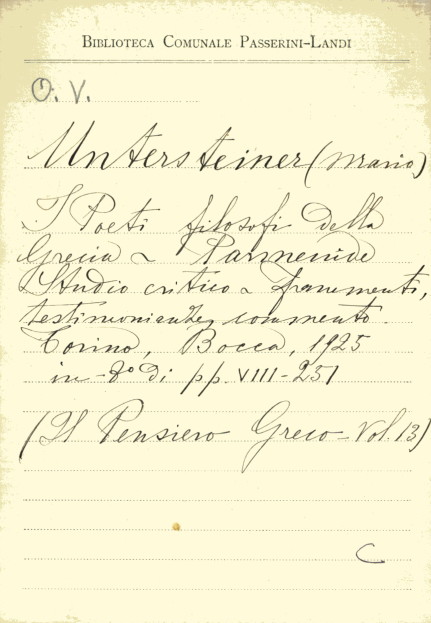 BIBLIOTECA COMUNALE PASSERINI-LANDI
O. V.
Untersteiner (Mario)
I Poeti filosofi della
Grecia - Parmenide
Studio critico - frammenti,
testimonianze, commento.
Torino, Bocca, 1925
in-8° di pp. VIII-251
(Il Pensiero Greco - Vol. 13)
C